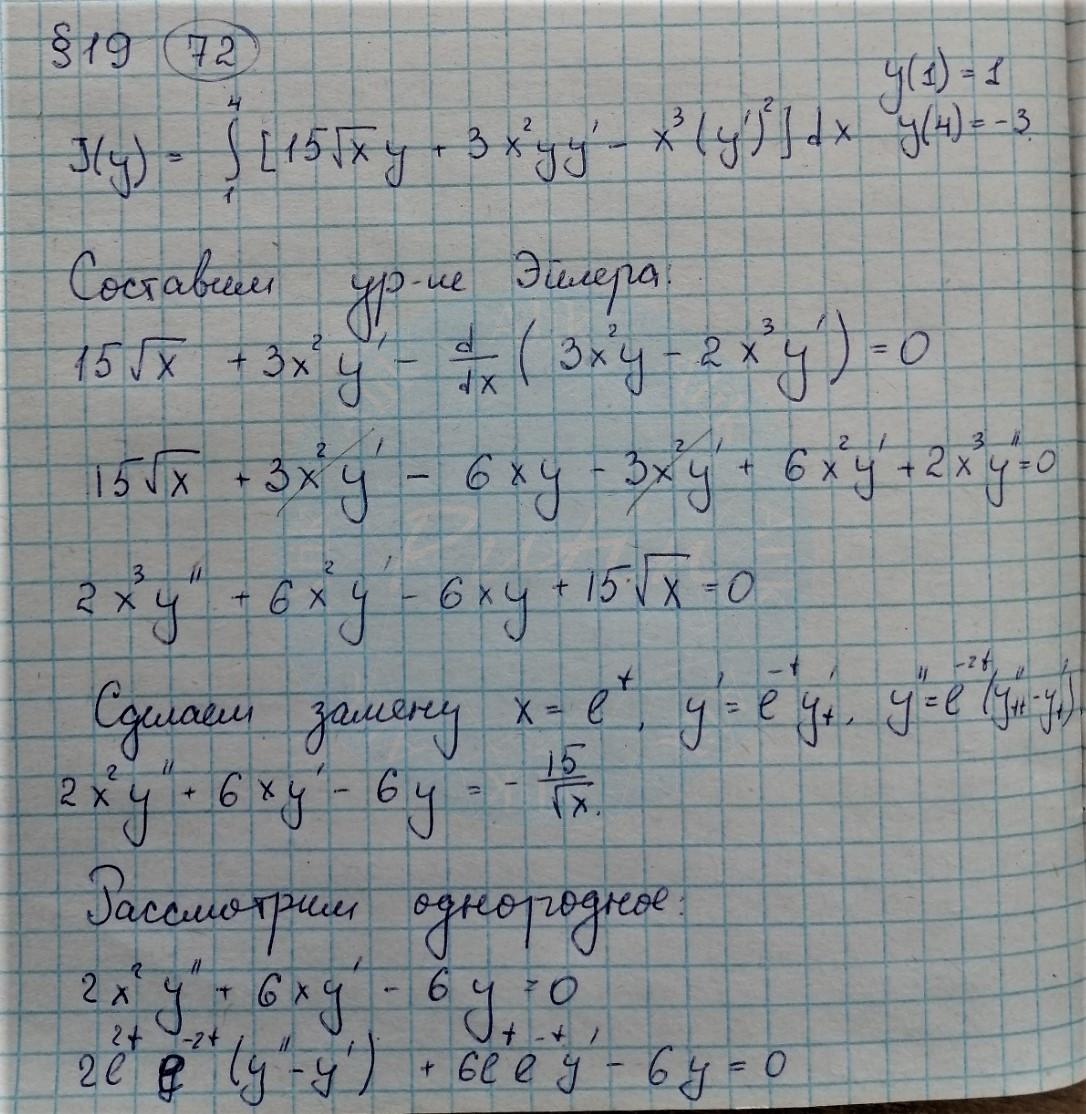 §19 (72)
y(1) = 1
J(y) = ∫₁⁴ [15√x y + 3x²yy' − x³(y')²]dx y(4) = −3.
Составим ур-ие Эйлера:
15√x + 3x²y' − d/dx (3x²y − 2x³y') = 0
15√x + 3x²y' − 6xy − 3x²y' + 6x²y' + 2x³y'' = 0
2x³y'' + 6x²y' − 6xy + 15√x = 0
Сделаем замену x = eᵗ, y' = e⁻ᵗy'ₜ, y'' = e⁻²ᵗ(y''ₜₜ − y'ₜ)
2x²y'' + 6xy' − 6y = − 15/√x.
Рассмотрим однородное:
2x²y'' + 6xy' − 6y = 0
2e²ᵗ e⁻²ᵗ (y'' − y') + 6eᵗe⁻ᵗy' − 6y = 0